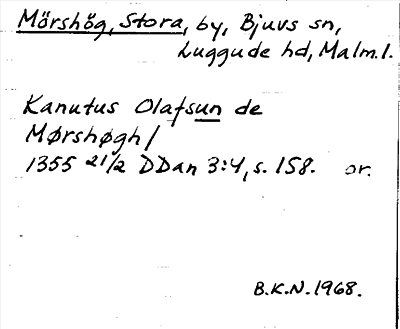 Mörshög, Stora, by, Bjuvs sn,
Luggude hd, Malm.l.
Kanutus Olafsun de
Mørshøgh/
1355 21/2 DDan 3:4, s. 158. or.
B.K.N. 1968.